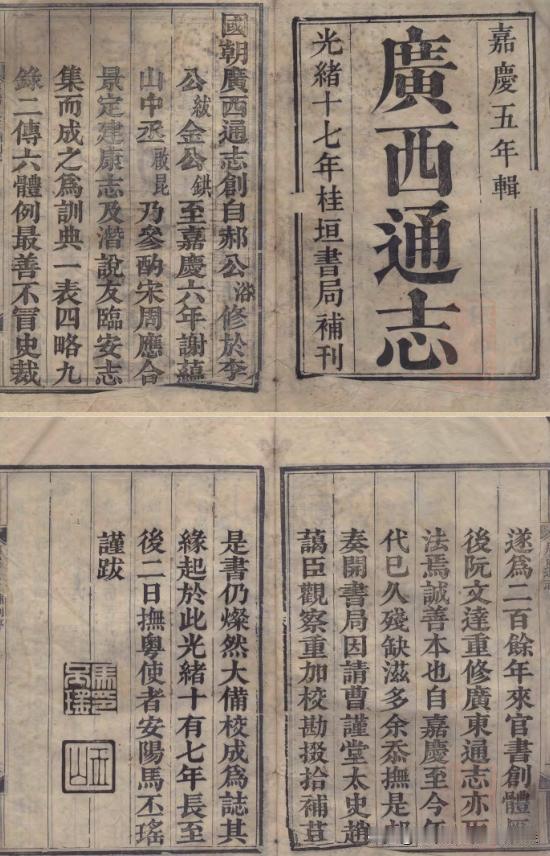 嘉慶五年輯
廣西通志
光緒十七年桂垣書局補刊
國朝廣西通志創自郝公浴修於李
公紱金公鉷至嘉慶六年謝蘊
山中丞啟昆乃參酌宋周應合
景定建康志及潛說友臨安志
集而成之爲訓典一表四略九
錄二傳六體例最善不冐史裁
遂爲二百餘年來官書創體
後阮文達重修廣東通志亦
法焉誠善本也自嘉慶至今年
代已久殘缺滋多余忝撫是邦
奏開書局因請曹謹堂太史趙
藹臣觀察重加校勘掇拾補苴
是書仍燦然大備校成爲誌其
緣起於此光緒十有七年長至
後二日撫粵使者安陽馬丕瑤
謹跋